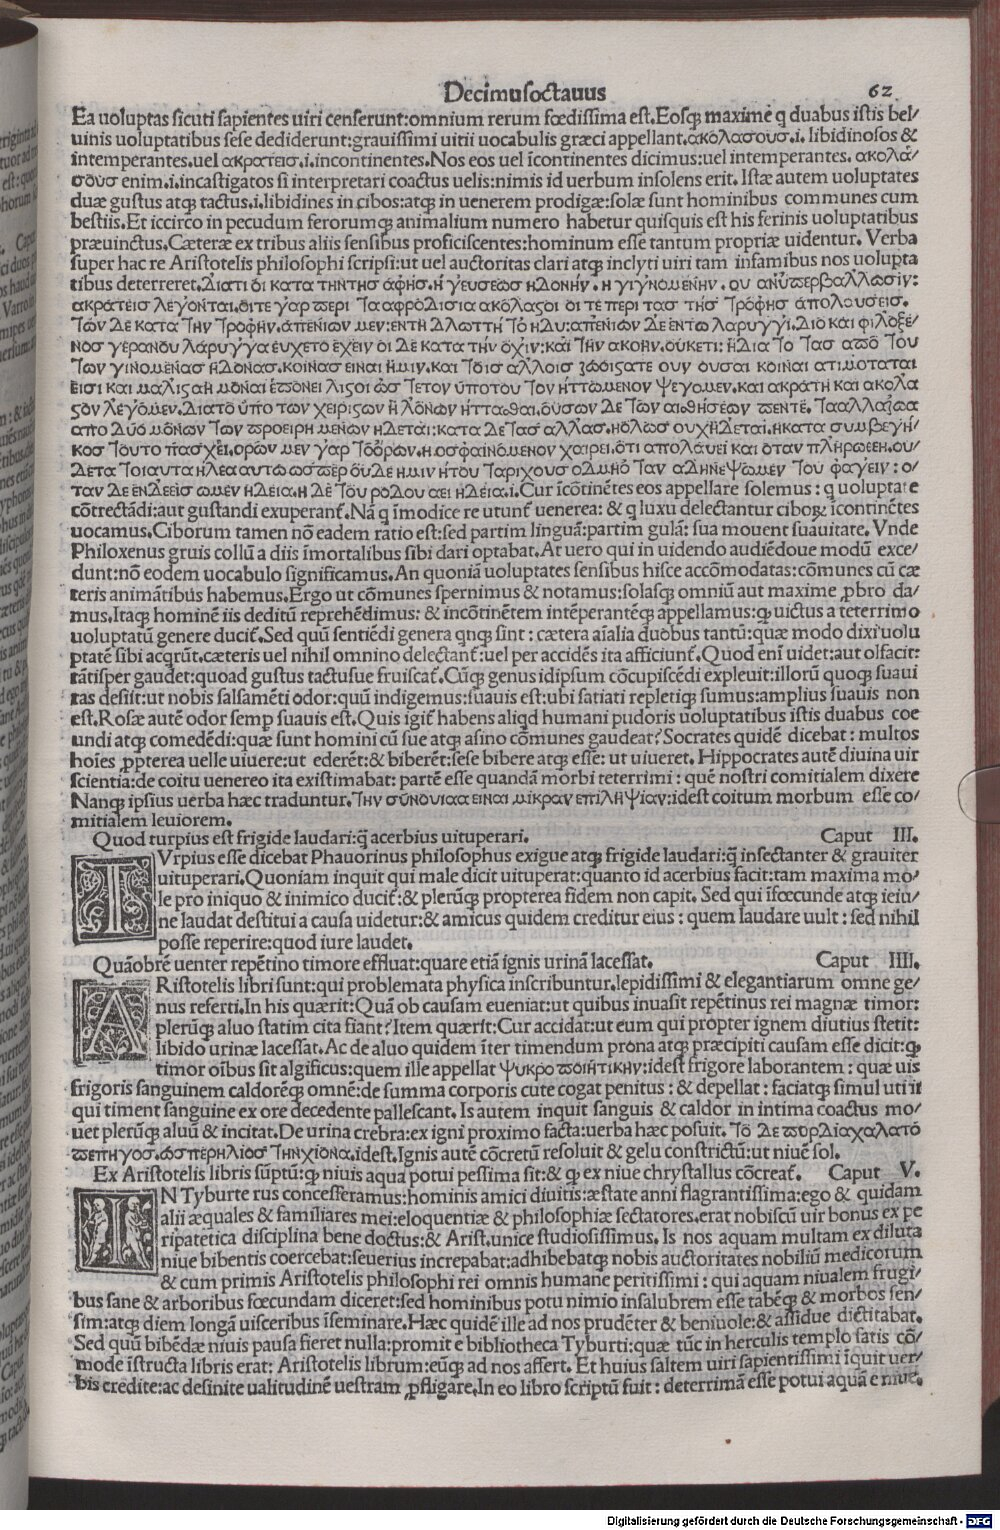 Decimusoctauus 62
Ea uoluptas sicuti sapientes uiri censerunt:omnium rerum fœdissima est.Eosq; maxime q duabus istis bel/
uinis uoluptatibus sese dediderunt:grauissimi uitii uocabulis græci appellant.ἀκόλασουσ.i. libidinosos &
intemperantes.uel ακρατεισ.i.incontinentes.Nos eos uel īcontinentes dicimus:uel intemperantes. ακολά/
σόυσ enim.i.incastigatos si interpretari coactus uelis:nimis id uerbum insolens erit. Istæ autem uoluptates
duæ gustus atq; tactus.i.libidines in cibos:atq; in uenerem prodigæ:solæ sunt hominibus communes cum
bestiis.Et iccirco in pecudum ferorumq; animalium numero habetur quisquis est his ferinis uoluptatibus
præuinctus.Cæteræ ex tribus aliis sensibus proficiscentes:hominum esse tantum propriæ uidentur. Verba
super hac re Aristotelis philosophi scripsi:ut uel auctoritas clari atq; inclyti uiri tam infamibus nos uolupta
tibus deterreret.Διατι ὁι κατα τηντησ ἁφησ.ἢ γευσεωσ ηδονην. ἢ γιγνομενην. ου ἀνὑπερβαλλωσιν:
ακρατεισ λεγονται.ὁιτε γαρ περι τααφροδισια ακολασοι ὁι τε περι τασ τησ τροφησ ἀπολαυσεισ.
των δε κατα την τροφην.ἀπενιων μεν:εντη γλωττη το ηδυ:απενιων δε εντω λαρυγγι.διο και φιλοξε/
νοσ γερανου λαρυγγα ευχετο εχειν οι δε κατα την οψιν:και την ακοην.ουκετι: ηδια το τασ απο του
των γινομενασ ηδονασ.κοινασ ειναι ημιν.και τοισ αλλοισ ζωοισατε ουν ουσαι κοιναι ατιμοταται
εισι και μαλιστα μοναι επονει λιστοι ωσ τετον υποτου τον ηττωμενον ψεγομεν.και ακρατη και ακολα
στον λεγομεν.διατο υπο των χειριστων ηδονων ητταθαι.ουσων δε των αισθησεων πεντε. τααλλαζωα
απο δυο μονων των προειρη μενων ηδεται:κατα δε τασ αλλασ.ηολωσ ουχηδεται.ηκατα συμβεγη/
κοσ τουτο πασχει.ορων μεν γαρ τοορων.η οσφαινομενον χαιρει.οτι απολαυει και οταν πληρωεεη.ου/
δετα τοιαυτα ηδεα αυτω ωσπερ ουδε ημιν ητου ταριχουσ οδμηο ταν αδηνεψωμεν του φαγειν : ο/
ταν δε ενδεεισ ωμεν ηδεια.η δε του ροδου αει ηδεια.i.Cur īcōtinētes eos appellare solemus : q uoluptate
cōtrectādi:aut gustandi exuperant̄. Nā q īmodice re utunt̄ uenerea: & q luxu delectantur ciboꝝ īcontinētes
uocamus.Ciborum tamen nō eadem ratio est:sed partim linguā:partim gulā: sua mouent suauitate. Vnde
Philoxenus gruis collū a diis īmortalibus sibi dari optabat. At uero qui in uidendo audiēdoue modū exce/
dunt:nō eodem uocabulo significamus.An quoniā uoluptates sensibus hisce accōmodatas:cōmunes cū cæ
teris animātibus habemus.Ergo ut cōmunes spernimus & notamus:solasq; omniū aut maxime ꝓbro da/
mus.Itaq; hominē iis deditū reprehēdimus: & incōtinētem intēperantēq; appellamus:ꝙ uictus a teterrimo
uoluptatū genere ducit̄.Sed quū sentiēdi genera qnq; sint : cætera aīalia duobus tantū:quæ modo dixi uolu
ptatē sibi acqrūt.cæteris uel nihil omnino delectant̄:uel per accidēs ita afficiunt̄.Quod enī uidet:aut olfacit:
tātisper gaudet:quoad gustus tactusue fruiscat̄. Cūq; genus idipsum cōcupiscēdi expleuit:illorū quoq; suaui
tas desiit:ut nobis salsamēti odor:quū indigemus:suauis est:ubi satiati repletiq; sumus:amplius suauis non
est.Rosæ autē odor semp suauis est.Quis igit̄ habens aliqd humani pudoris uoluptatibus istis duabus coe
undi atq; comedēdi:quæ sunt homini cū sue atq; asino cōmunes gaudeat? Socrates quidē dicebat : multos
hoīes ꝓpterea uelle uiuere:ut ederēt:& biberēt:sese bibere atq; esse: ut uiueret. Hippocrates autē diuina uir
scientia:de coitu uenereo ita existimabat: partē esse quandā morbi teterrimi : quē nostri comitialem dixere
Nanq; ipsius uerba hæc traduntur. την σύνουιαα ειναι μικραν επιληψιαν:idest coitum morbum esse co/
mitialem leuiorem.
Quod turpius est frigide laudari:q̄ acerbius uituperari. Caput III.
TVrpius esse dicebat Phauorinus philosophus exigue atq; frigide laudari:q̄ insectanter & grauiter
uituperari.Quoniam inquit qui male dicit uituperat:quanto id acerbius facit:tam maxima mo/
le pro iniquo & inimico ducit̄:& plerūq; propterea fidem non capit. Sed qui īfœcunde atq; ieiu/
ne laudat destitui a causa uidetur:& amicus quidem creditur eius : quem laudare uult : sed nihil
posse reperire:quod iure laudet.
Quāobrē uenter repētino timore effluat:quare etiā ignis urinā lacessat. Caput IIII.
ARistotelis libri sunt:qui problemata physica inscribuntur.lepidissimi & elegantiarum omne ge/
nus referti.In his quærit: Quā ob causam eueniat:ut quibus inuasit repētinus rei magnæ timor:
plerūq; aluo statim cita fiant? Item quærit:Cur accidat:ut eum qui propter ignem diutius stetit:
libido urinæ lacessat. Ac de aluo quidem īter timendum prona atq; præcipiti causam esse dicit:ꝙ
timor oībus sit algificus:quem ille appellat ψυκροποιητικην:idest frigore laborantem : quæ uis
frigoris sanguinem caldorēq; omnē:de summa corporis cute cogat penitus : & depellat : faciatq; simul uti ii
qui timent sanguine ex ore decedente pallescant. Is autem inquit sanguis & caldor in intima coactus mo/
uet plerūq; aluū & incitat.De urina crebra:ex igni proximo facta:uerba hæc posuit. τὸ δε πορδιαχαλατὸ
πεπηγοσ.ὡσπερηλιοσ τηνχιονα.idest.Ignis autē cōcretū resoluit & gelu constrictū:ut niuē sol.
Ex Aristotelis libris sūptū:ꝙ niuis aqua potui pessima sit:& ꝙ ex niue chrystallus cōcreat̄. Caput V.
IN Tyburte rus concesseramus:hominis amici diuitis:æstate anni flagrantissima:ego & quidam
alii æquales & familiares mei:eloquentiæ & philosophiæ sectatores.erat nobiscū uir bonus ex pe
ripatetica disciplina bene doctus:& Arist.unice studiosissimus. Is nos aquam multam ex diluta
niue bibentis coercebat:seuerius increpabat:adhibebatq; nobis auctoritates nobiliū medicorum
& cum primis Aristotelis philosophi rei omnis humane peritissimi : qui aquam niualem frugi/
bus sane & arboribus fœcundam diceret:sed hominibus potu nimio insalubrem esse tabēq; & morbos sen/
sim:atq; diem longā uisceribus īseminare. Hæc quidē ille ad nos prudēter & beniuole:& assidue dictitabat.
Sed quū bibēdæ niuis pausa fieret nulla:promit e bibliotheca Tyburti:quæ tūc in herculis templo satis cō/
mode īstructa libris erat: Aristotelis librum:eūq; ad nos affert. Et huius saltem uiri sapientissimi īquit uer/
bis credite:ac desinite ualitudinē uestram ꝓfligare.In eo libro scriptū fuit : deterrimā esse potui aquā e niue.
Digitalisierung gefördert durch die Deutsche Forschungsgemeinschaft - DFG